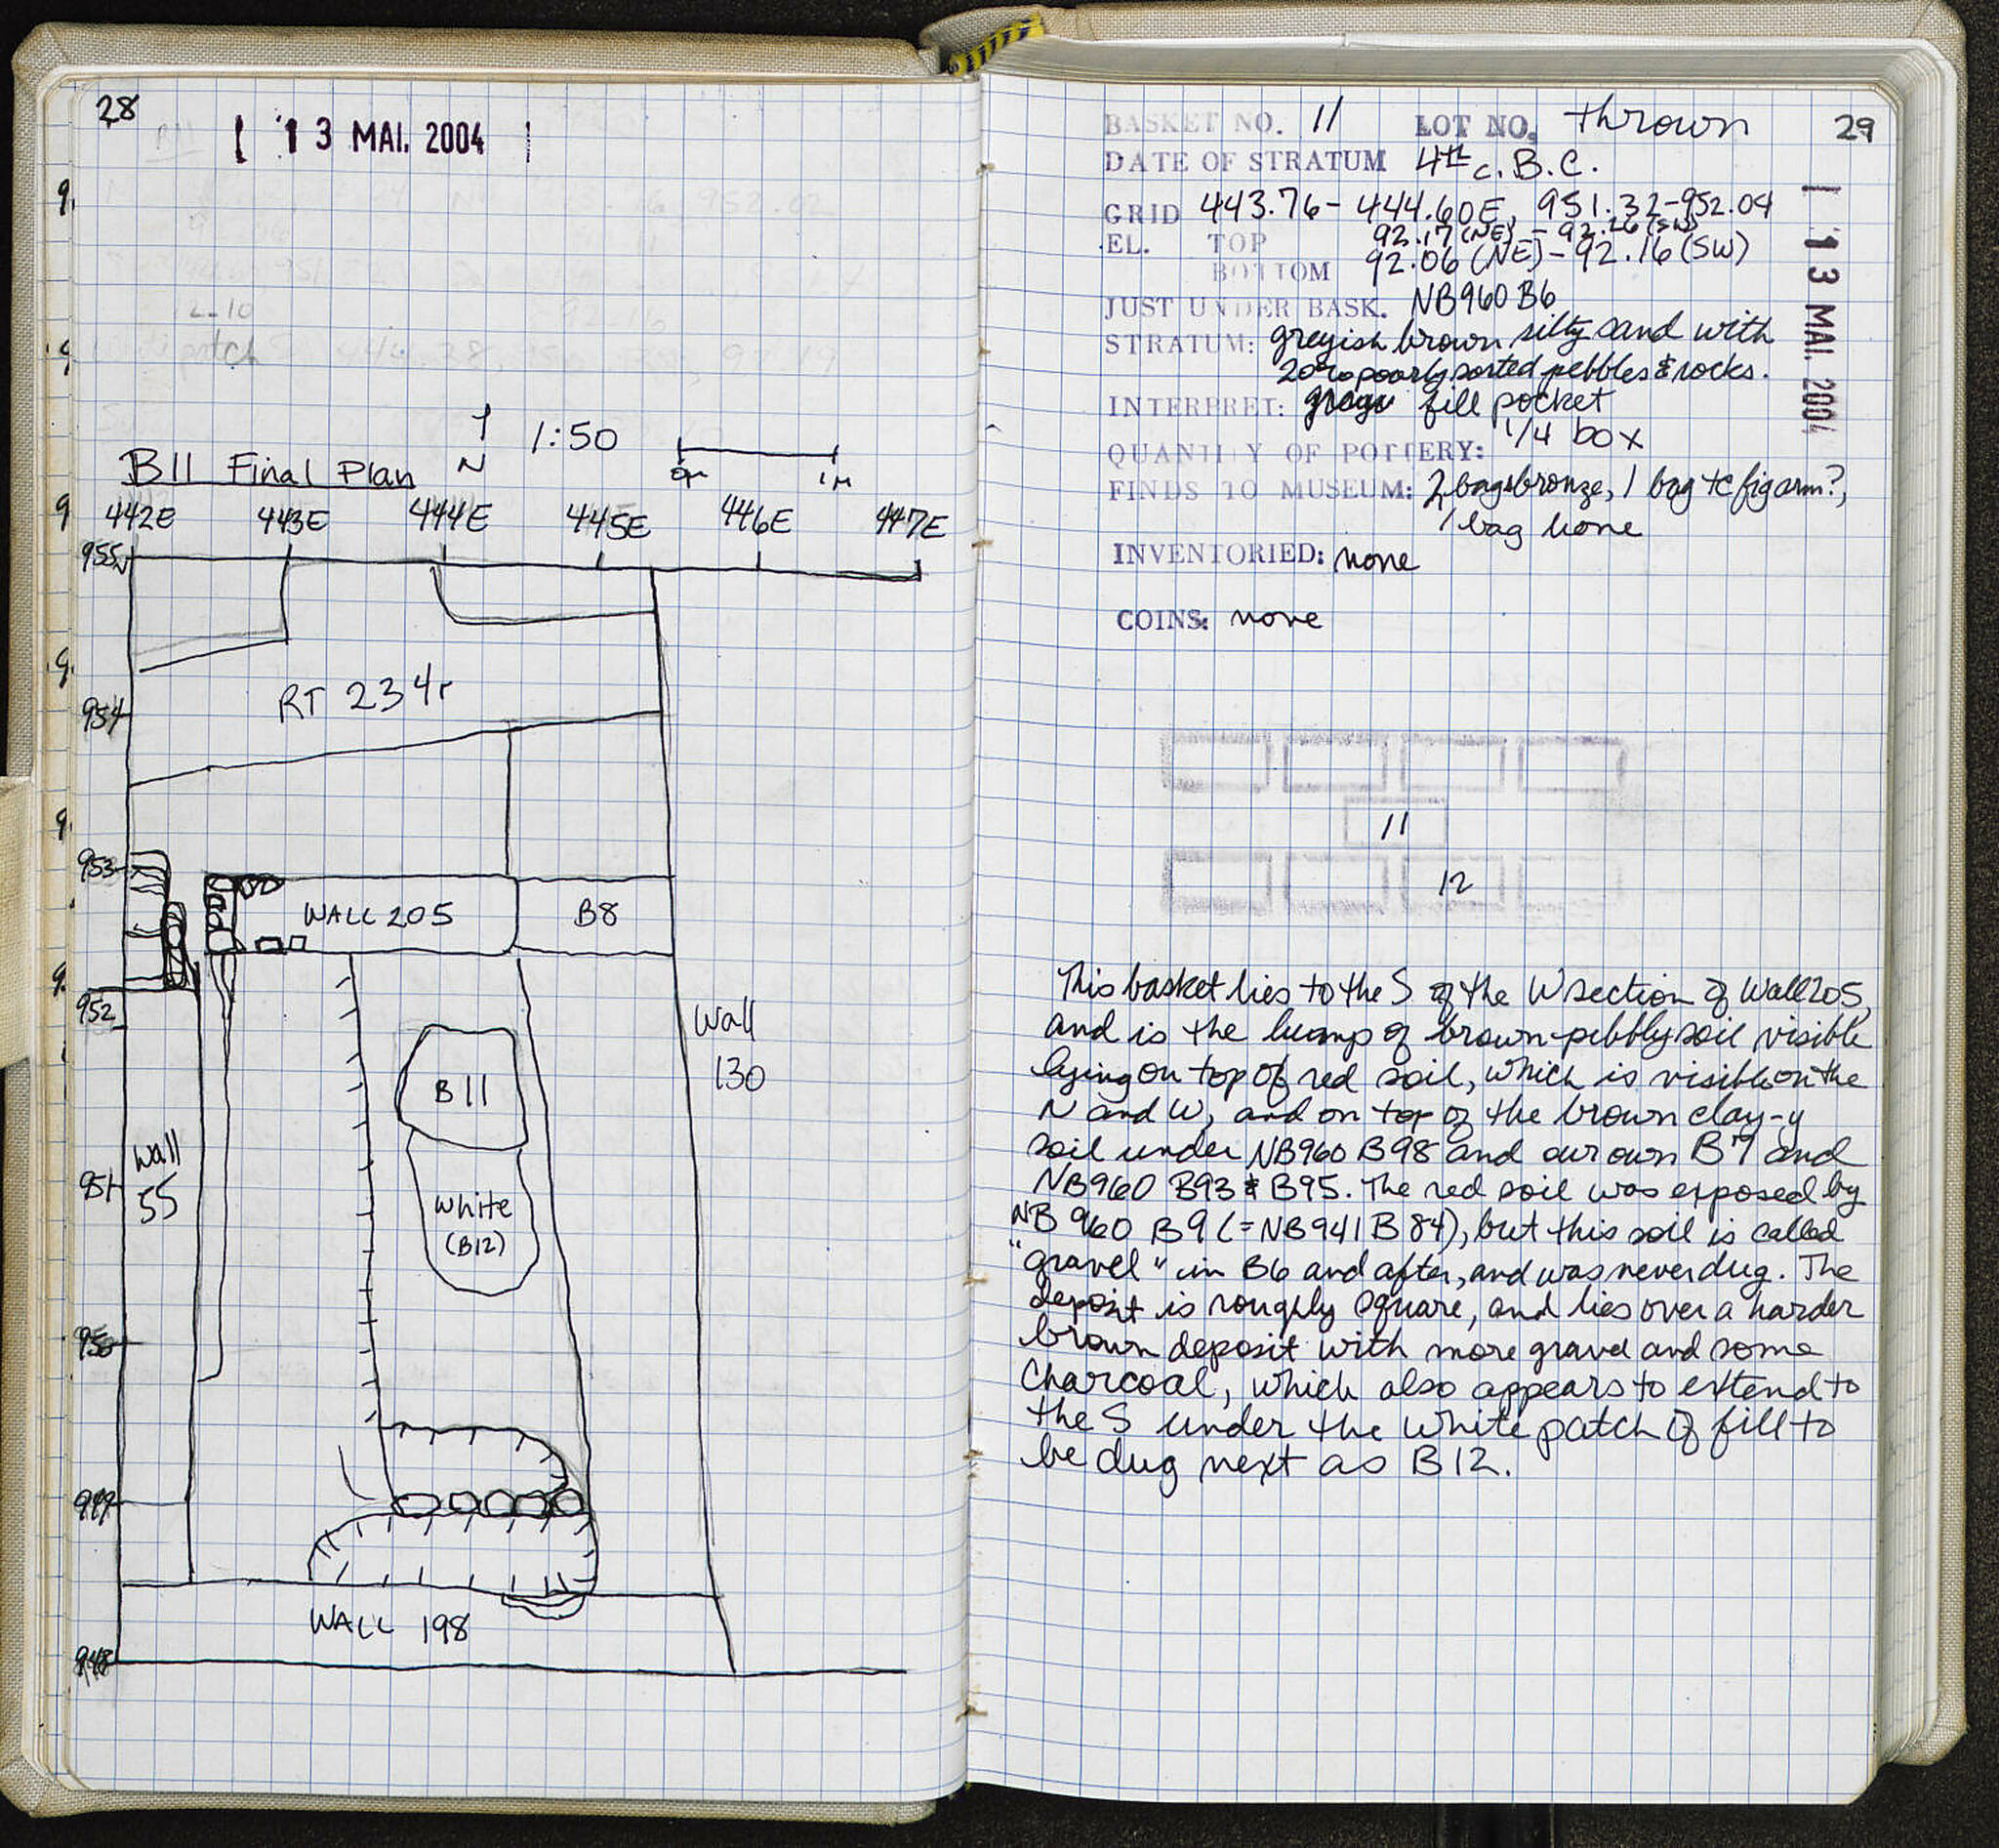 28
13 MAI. 2004
1:50
N
0m 1m
B11 Final Plan
442E 443E 444E 445E 446E 447E
955N
RT 234r
954
953
WALL 205 B8
952
Wall
130
B11
Wall
55
951
White
(B12)
950
949
WALL 198
948
BASKET NO. 11 LOT NO. thrown
29
DATE OF STRATUM 4th c. B.C.
GRID 443.76-444.60E, 951.32-952.04
EL. TOP 92.17 (NE) - 92.26 (SW)
BOTTOM 92.06 (NE) - 92.16 (SW)
JUST UNDER BASK. NB960 B6
STRATUM: greyish brown silty sand with
20% poorly sorted pebbles & rocks.
INTERPRET: fill pocket
QUANTITY OF POTTERY: 1/4 box
FINDS TO MUSEUM: 2 bags bronze, 1 bag tc fig arm?,
1 bag bone
INVENTORIED: none
COINS: none
13 MAI. 2004
11
12
This basket lies to the S of the W section of Wall 205,
and is the lump of brown-pebbly soil visible
lying on top of red soil, which is visible on the
N and W, and on top of the brown clay-y
soil under NB960 B98 and our own B9 and
NB960 B93 & B95. The red soil was exposed by
NB 960 B9 (=NB941 B 84), but this soil is called
"gravel" in B6 and after, and was never dug. The
deposit is roughly square, and lies over a harder
brown deposit with more gravel and some
charcoal, which also appears to extend to
the S under the white patch of fill to
be dug next as B12.